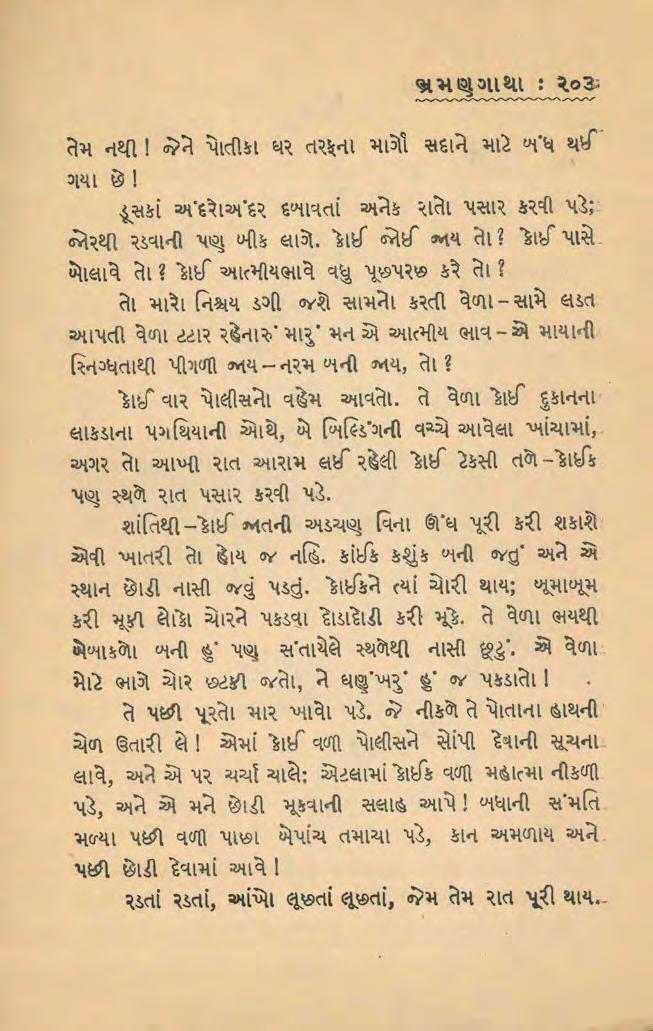 ભ્રમણગાથા : ૨૦૩
તેમ નથી ! જેને પોતીકા ઘર તરફના માર્ગો સદાને માટે બંધ થઈ
ગયા છે !
ડૂસકાં અંદરોઅંદર દબાવતાં અનેક રાતો પસાર કરવી પડે;
જોરથી રડવાની પણ બીક લાગે. કોઈ જોઈ જાય તો ? કોઈ પાસે
બોલાવે તો ? કોઈ આત્મીયભાવે વધુ પૂછપરછ કરે તો ?
તો મારો નિશ્ચય ડગી જશે સામનો કરતી વેળા – સામે લડત
આપતી વેળા ટટાર રહેનારું મારું મન એ આત્મીય ભાવ – એ માયાની
સ્નિગ્ધતાથી પીગળી જાય – નરમ બની જાય, તો ?
કોઈ વાર પોલીસનો વહેમ આવતો. તે વેળા કોઈ દુકાનના
લાકડાના પગથિયાની ઓથે, બે બિલ્ડિંગની વચ્ચે આવેલા ખાંચામાં,
અગર તો આખી રાત આરામ લઈ રહેલી કોઈ ટેકસી તળે – કોઈક
પણ સ્થળે રાત પસાર કરવી પડે.
શાંતિથી – કોઈ જાતની અડચણ વિના ઊંઘ પૂરી કરી શકાશે
એવી ખાતરી તો હોય જ નહિ. કાંઈક કશુંક બની જતું અને એ
સ્થાન છોડી નાસી જવું પડતું. કોઈકને ત્યાં ચોરી થાય; બૂમાબૂમ
કરી મૂકી લોકો ચોરને પકડવા દોડાદોડી કરી મૂકે. તે વેળા ભયથી
બેબાકળો બની હું પણ સંતાયેલે સ્થળેથી નાસી છૂટું. એ વેળા
મોટે ભાગે ચોર છટકી જતો, ને ઘણુંખરું હું જ પકડાતો !
તે પછી પૂરતો માર ખાવો પડે. જે નીકળે તે પોતાના હાથની
ચેળ ઉતારી લે ! એમાં કોઈ વળી પોલીસને સોંપી દેવાની સૂચના
લાવે, અને એ પર ચર્ચા ચાલે; એટલામાં કોઈક વળી મહાત્મા નીકળી
પડે, અને એ મને છોડી મૂકવાની સલાહ આપે ! બધાની સંમતિ
મળ્યા પછી વળી પાછા બેપાંચ તમાચા પડે, કાન અમળાય અને
પછી છોડી દેવામાં આવે !
રડતાં રડતાં, આંખો લૂછતાં લૂછતાં, જેમ તેમ રાત પૂરી થાય.